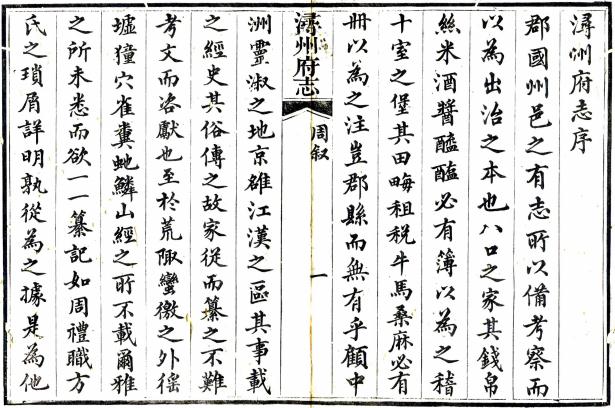 潯州府志序
郡國州邑之有志所以備考察而
以為出治之本也八口之家其錢帛
絲米酒醬醯醢必有簿以為之稽
十室之堡其田畮租稅牛馬桑麻必有
冊以為之注豈郡縣而無有乎顧中
潯州府志
周叙
一
洲靈淑之地京雒江漢之區其事載
之經史其俗傳之故家從而纂之不難
考文而咨獻也至於荒陬蠻徼之外徭
墟獞穴雀糞虵鱗山經之所不載爾雅
之所未悉而欲一一纂記如周禮職方
氏之瑣屑詳明孰從為之據是為他